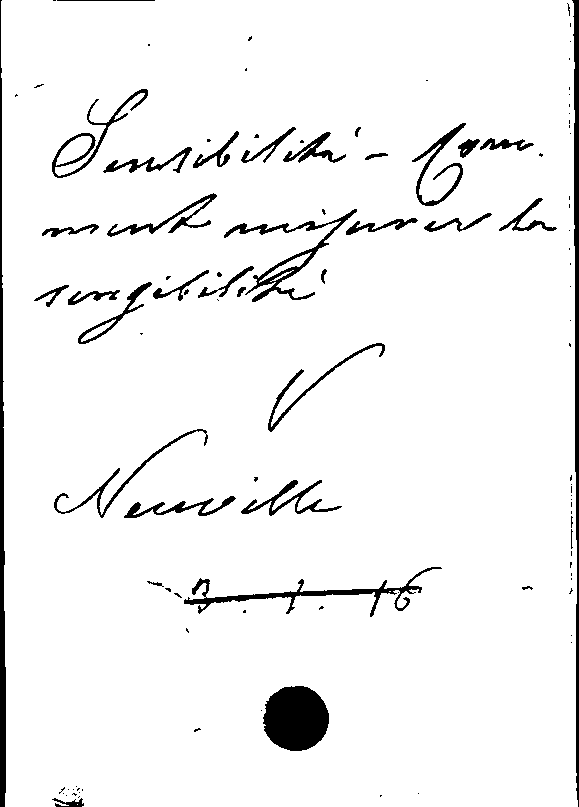 Sensibilité – Com-
ment mesurer la
sensibilité
V
Neuville
3.1.16